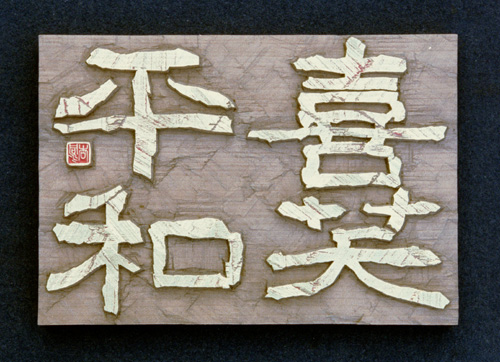 喜笑
平和